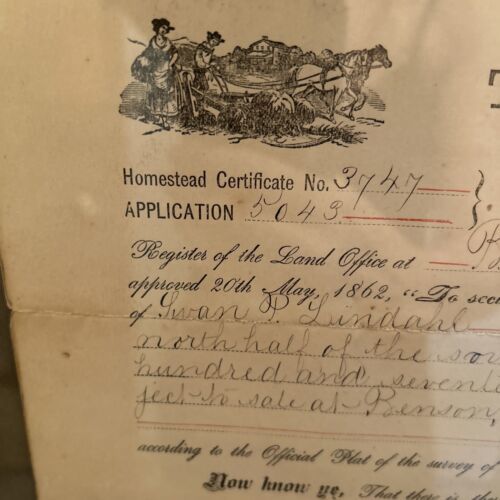 Homestead Certificate No. 3747
APPLICATION 5043
Register of the Land Office at
approved 20th May, 1862, "To
of Swan P. Lindahl
north half of the
hundred and
ject to sale at Benson,
according to the Official Plat of the survey of
Now know ye, That there